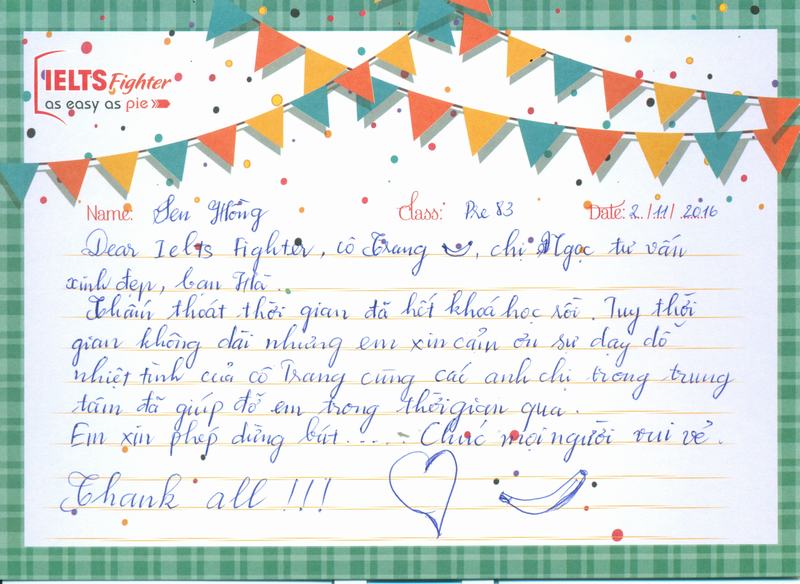 IELTS Fighter
as easy as pie
Name: Sen Hồng Class: Pre 83 Date: 2/11/2016
Dear Ielts Fighter, cô Trang, chị Ngọc tư vấn
xinh đẹp, bạn Hà.
Thấm thoát thời gian đã hết khoá học rồi. Tuy thời
gian không dài nhưng em xin cảm ơn sự dạy dỗ
nhiệt tình của cô Trang cùng các anh chị trong trung
tâm đã giúp đỡ em trong thời gian qua.
Em xin phép dừng bút..... Chúc mọi người vui vẻ.
Thank all !!!